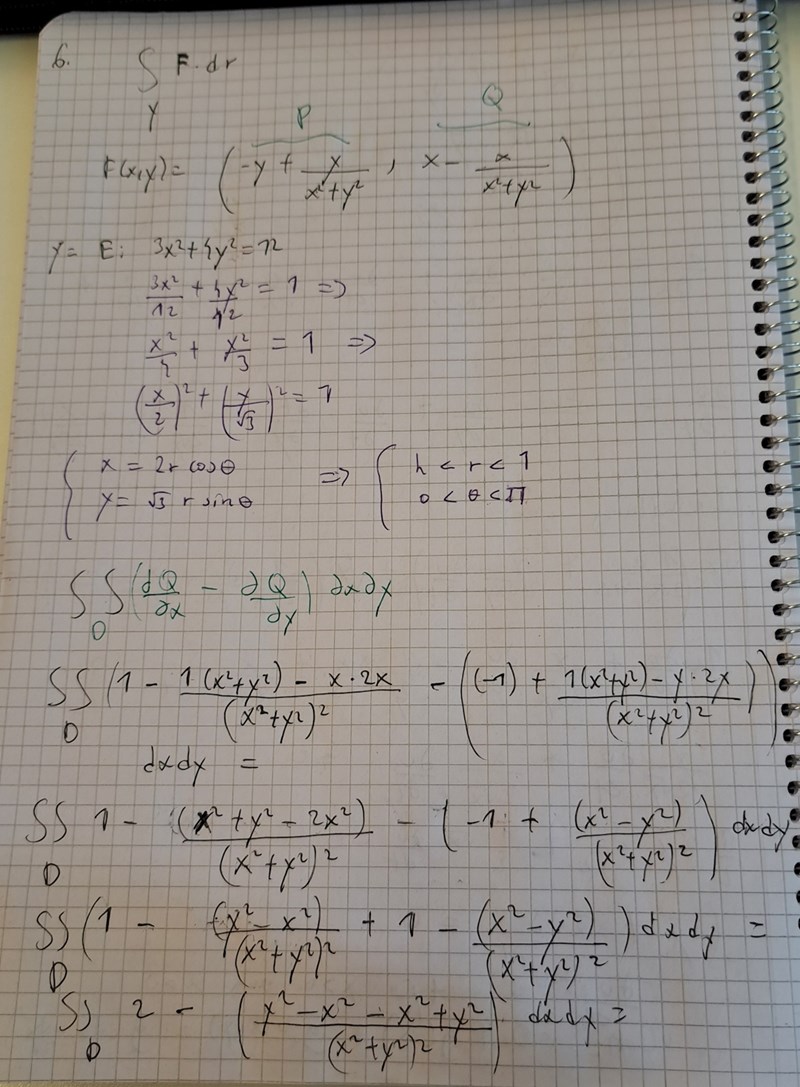 6. ∫ F·dr
γ
P Q
F(x,y) = (-y + y/(x²+y²), x - x/(x²+y²))
γ = E: 3x²+4y²=12
3x²/12 + 4y²/12 = 1 ⇒
x²/4 + y²/3 = 1 ⇒
(x/2)² + (y/√3)² = 1
{ x = 2r cosθ ⇒ { h < r < 1
y = √3 r sinθ 0 < θ < π
∫∫_D (∂Q/∂x - ∂Q/∂y) ∂x∂y
∫∫_D (1 - (1(x²+y²) - x·2x)/(x²+y²)² - ((-1) + (1(x²+y²) - y·2y)/(x²+y²)²))
dxdy =
∫∫_D 1 - (x²+y²-2x²)/(x²+y²)² - (-1 + (x²-y²)/(x²+y²)²) dxdy
∫∫_D (1 - (y²-x²)/(x²+y²)² + 1 - (x²-y²)/(x²+y²)²) dxdy =
∫∫_D 2 - (y²-x²-x²+y²)/(x²+y²)² dxdy =